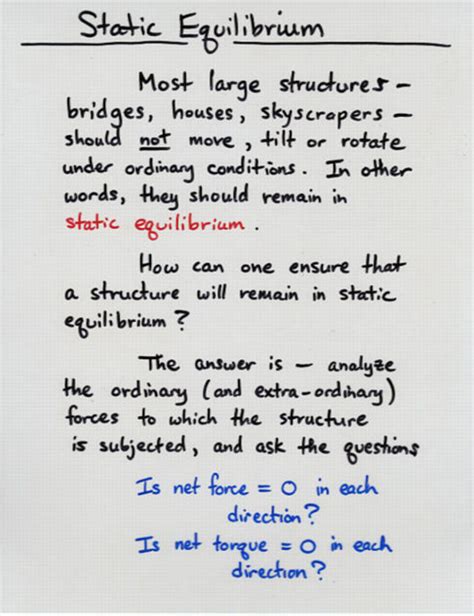 Static Equilibrium
Most large structures —
bridges, houses, skyscrapers —
should not move, tilt or rotate
under ordinary conditions. In other
words, they should remain in
static equilibrium.
How can one ensure that
a structure will remain in static
equilibrium?
The answer is — analyze
the ordinary (and extra-ordinary)
forces to which the structure
is subjected, and ask the questions
Is net force = 0 in each
direction?
Is net torque = 0 in each
direction?